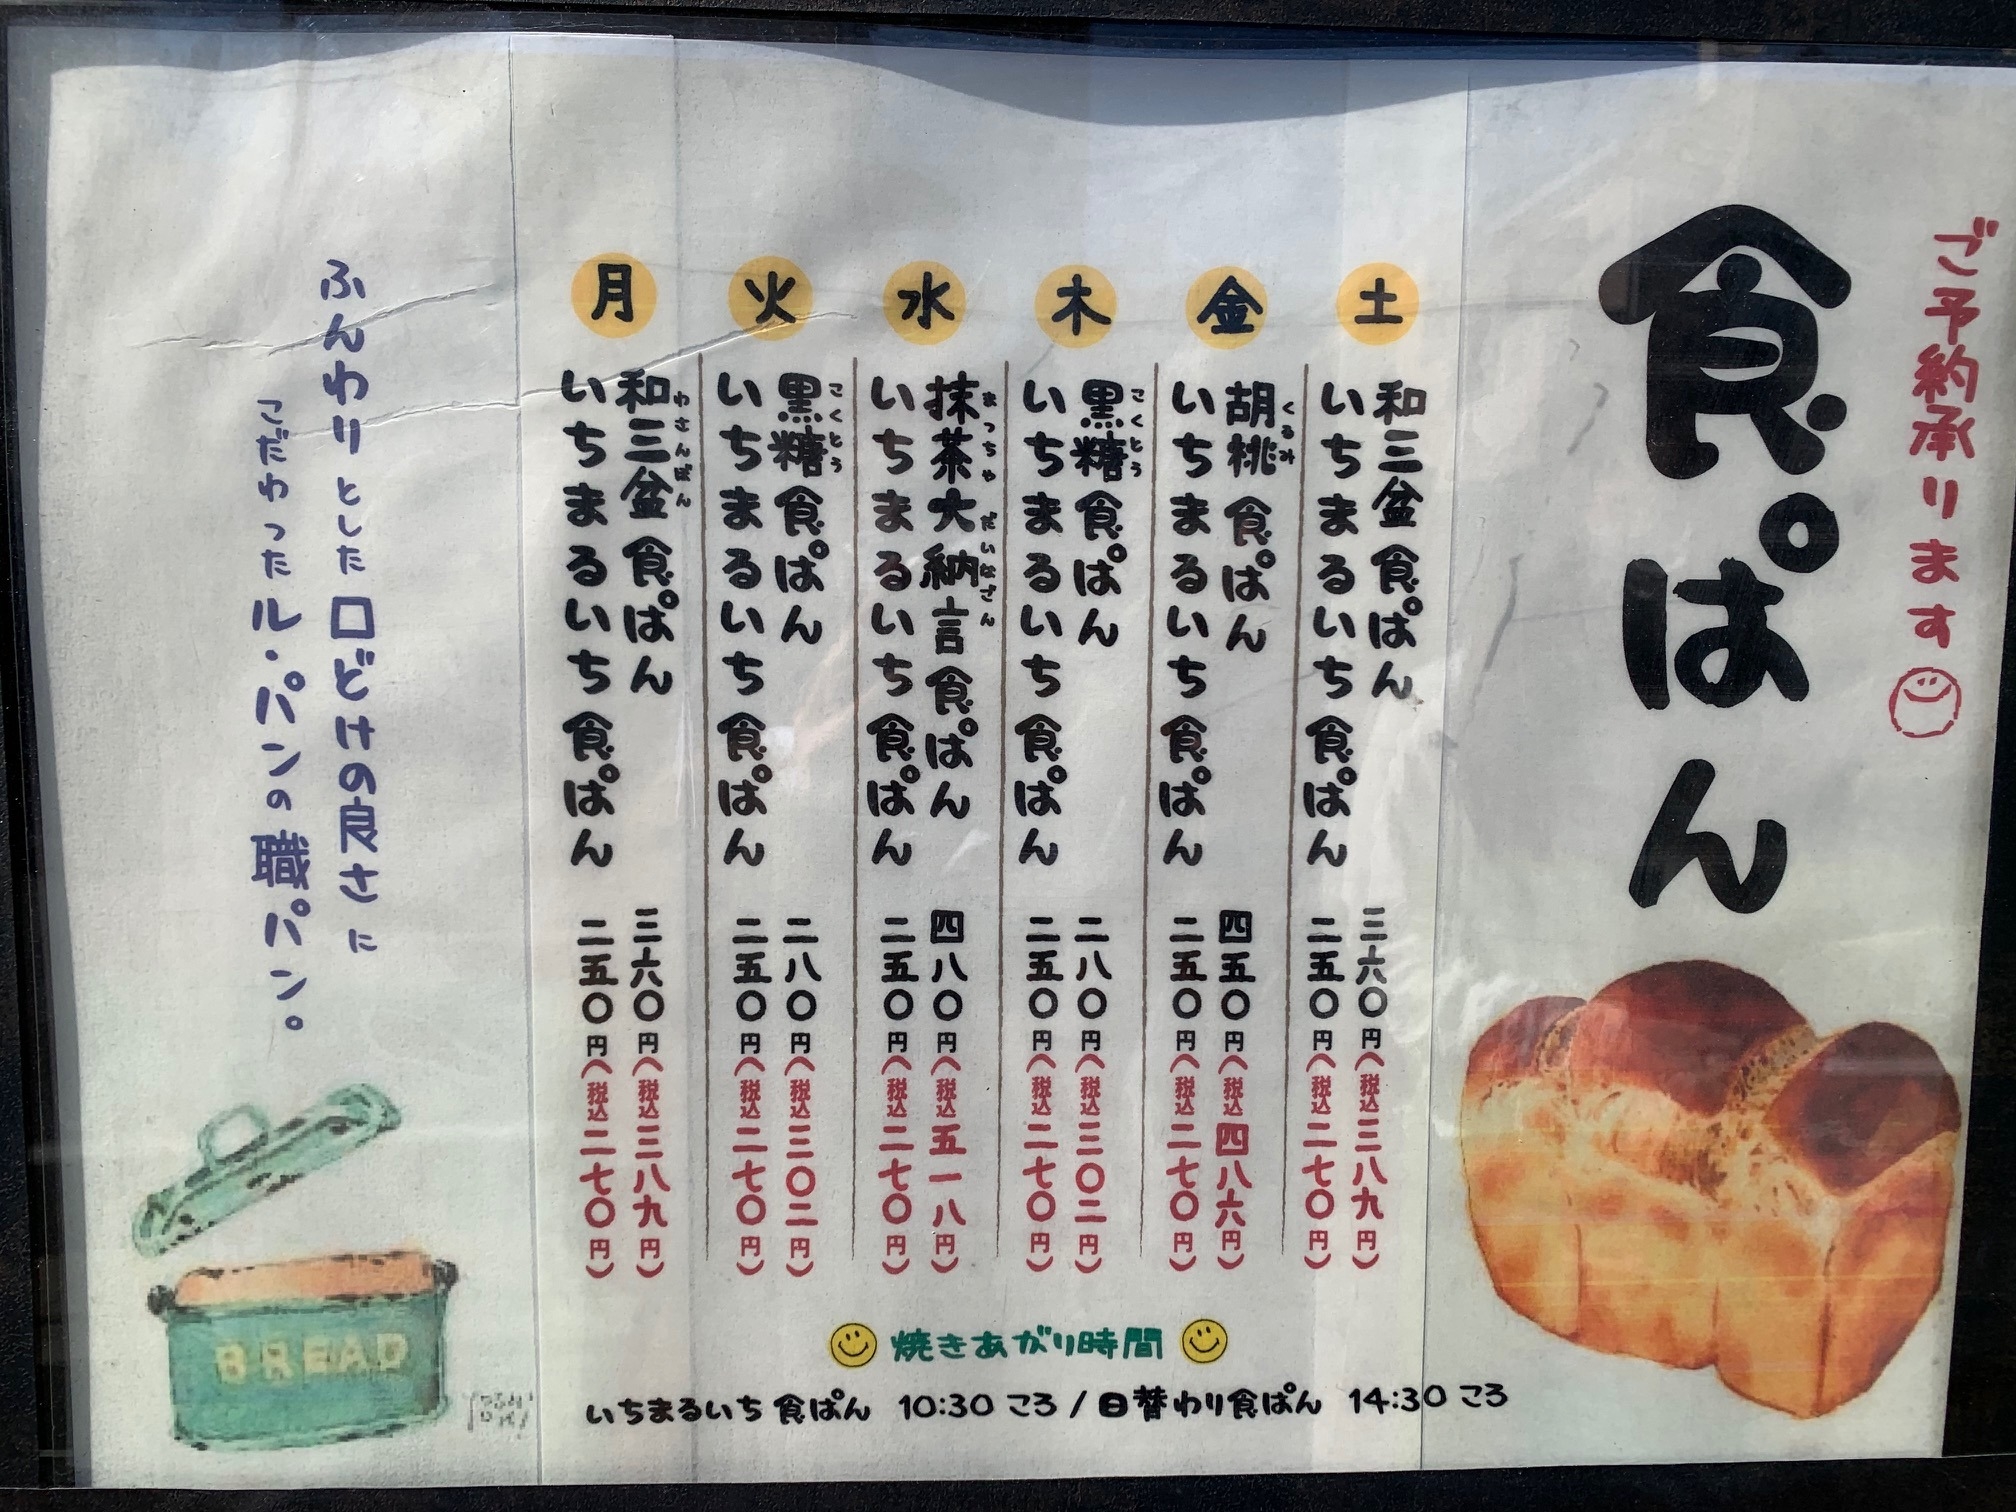 ご予約承ります
食ぱん
土
和三盆食ぱん 三六〇円(税込三八九円)
いちまるいち食ぱん 二五〇円(税込二七〇円)
金
胡桃食ぱん 四五〇円(税込四八六円)
くるみ
いちまるいち食ぱん 二五〇円(税込二七〇円)
木
黒糖食ぱん 二八〇円(税込三〇二円)
こくとう
いちまるいち食ぱん 二五〇円(税込二七〇円)
水
抹茶大納言食ぱん 四八〇円(税込五一八円)
まっちゃだいなごん
いちまるいち食ぱん 二五〇円(税込二七〇円)
火
黒糖食ぱん 二八〇円(税込三〇二円)
こくとう
いちまるいち食ぱん 二五〇円(税込二七〇円)
月
和三盆食ぱん 三六〇円(税込三八九円)
わさんぼん
いちまるいち食ぱん 二五〇円(税込二七〇円)
ふんわりとした口どけの良さに
こだわったル・パンの職パン。
BREAD
焼きあがり時間
いちまるいち食ぱん 10:30ころ/日替わり食ぱん 14:30ころ